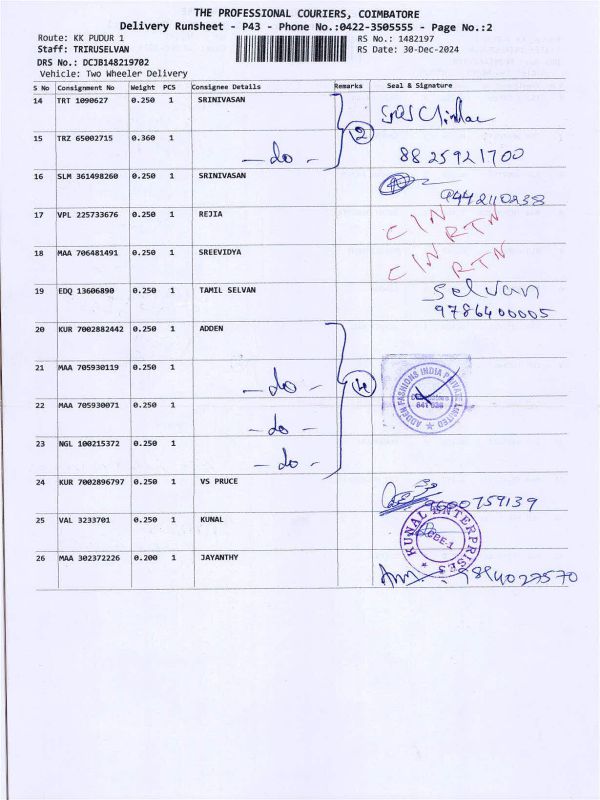 THE PROFESSIONAL COURIERS, COIMBATORE
Delivery Runsheet - P43 - Phone No.:0422-3505555 - Page No.:2
Route: KK PUDUR 1
RS No.: 1482197
Staff: TRIRUSELVAN
RS Date: 30-Dec-2024
DRS No.: DCJB148219702
Vehicle: Two Wheeler Delivery
S No Consignment No Weight PCS Consignee Details Remarks Seal & Signature
14 TRT 1090627 0.250 1 SRINIVASAN
15 TRZ 65002715 0.360 1
-do- 2 8825921700
16 SLM 361498260 0.250 1 SRINIVASAN
9442110238
17 VPL 225733676 0.250 1 REJIA C/N RTN
18 MAA 706481491 0.250 1 SREEVIDYA C/N RTN
19 EDQ 13606890 0.250 1 TAMIL SELVAN Selvan
9786400005
20 KUR 7002882442 0.250 1 ADDEN
21 MAA 705930119 0.250 1
-do- 4 ADDEN FASHIONS INDIA PRIVATE LIMITED
22 MAA 705930071 0.250 1
641 038
-do-
23 NGL 100215372 0.250 1
-do-
24 KUR 7002896797 0.250 1 VS PRUCE
9600759139
25 VAL 3233701 0.250 1 KUNAL KUNAL ENTERPRISES
CBE-1
26 MAA 302372226 0.200 1 JAYANTHY
9894027570